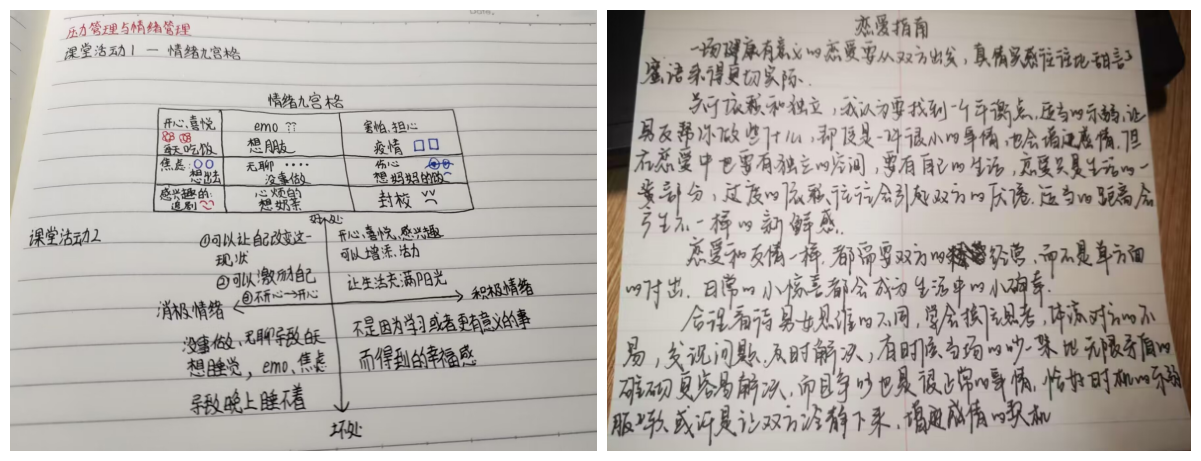 压力管理与情绪管理
课堂活动1 — 情绪九宫格
情绪九宫格
开心、喜悦
每天吃饭
emo ??
想朋友
害怕、担心
疫情
焦虑:
想出去
无聊 ····
没事做
伤心
想妈妈的饭
感兴趣的:
追剧
心烦的
想奶茶
封校
课堂活动2
好处
①可以让自己改变这一
现状
②可以激励自己
③不开心→开心
开心、喜悦、感兴趣
可以增添活力
让生活充满阳光
消极情绪
积极情绪
没事做、无聊导致白天
想睡觉, emo、焦虑
导致晚上睡不着
不是因为学习或者更有意义的事
而得到的幸福感
坏处
恋爱指南
一场健康有意义的恋爱要从双方出发,真情实感往往比甜言
蜜语来得更切实际.
关于依赖和独立,我认为要找到一个平衡点,适当的示弱,让
男友帮你做些什么,即使是一件很小的事情,也会增进感情.但
在恋爱中也要有独立的空间,要有自己的生活,恋爱只是生活的
一部分,过度的依赖往往会引起双方的厌倦.适当的距离会
产生不一样的新鲜感.
恋爱和友情一样,都需要双方的经营,而不是单方面
的付出.日常的小惊喜都会成为生活中的小确幸.
合理看待男女思维的不同,学会换位思考,体谅对方的不
易,发现问题,及时解决,有时候当场的吵一架比无限矛盾的
堆砌更容易解决,而且争吵也是很正常的事情,恰好时机的示弱
服软或许是让双方冷静下来,增进感情的契机